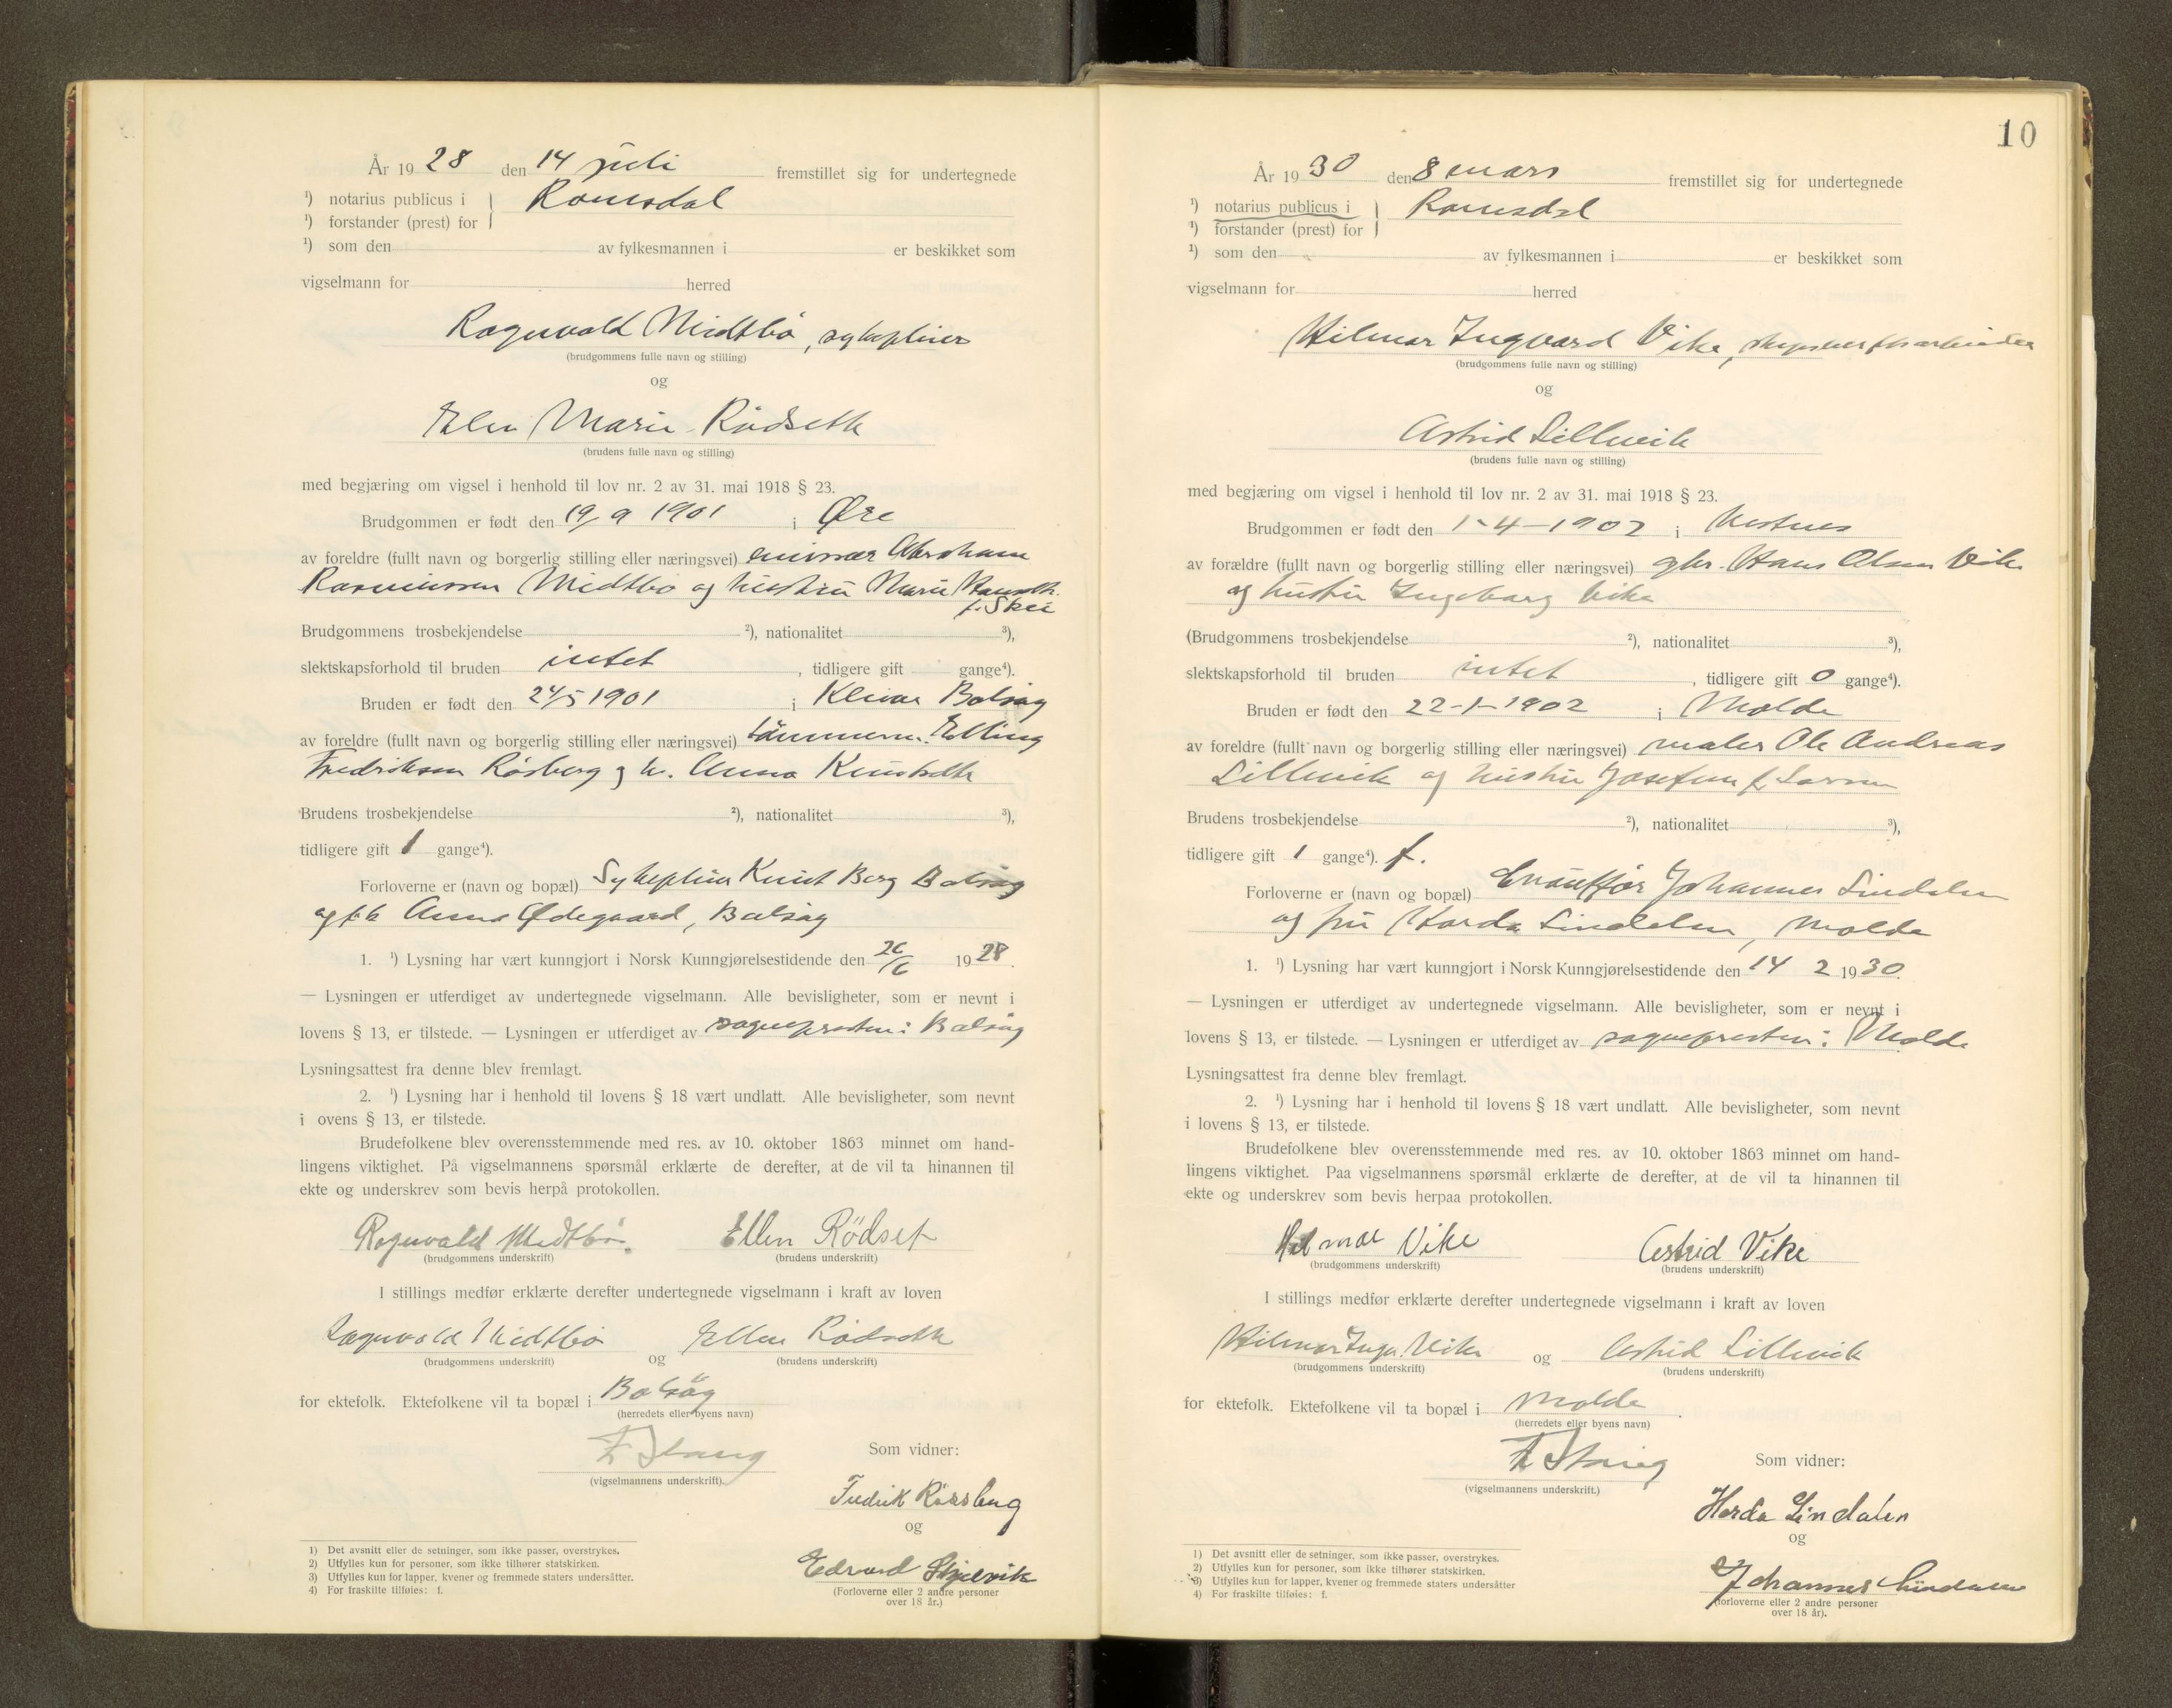 År 1928 den 14 juli fremstillet sig for undertegnede
¹) notarius publicus i } Romsdal
¹) forstander (prest) for
¹) som den av fylkesmannen i er beskikket som
vigselmann for herred
Ragnvald Midtbö, sykepleier
(brudgommens fulle navn og stilling)
og
Ellen Marie Rödseth
(brudens fulle navn og stilling)
med begjæring om vigsel i henhold til lov nr. 2 av 31. mai 1918 § 23.
Brudgommen er født den 19/9 1901 i Øre
av foreldre (fullt navn og borgerlig stilling eller næringsvei) emissær Abraham
Rasmussen Midtbö og hustru Marie
f. Skei
Brudgommens trosbekjendelse ²), nationalitet ³),
slektskapsforhold til bruden intet , tidligere gift gange⁴).
Bruden er født den 24/5 1901 i Bolsøy
av foreldre (fullt navn og borgerlig stilling eller næringsvei) tömmerm. Elling
Fredriksen Rösberg og h. Anna
Brudens trosbekjendelse ²), nationalitet ³),
tidligere gift 1 gange⁴).
Forloverne er (navn og bopæl) Sykepleier Knut Berg Bolsøy
og frk Anna Ødegaard, Bolsøy
1. ¹) Lysning har vært kunngjort i Norsk Kunngjørelsestidende den 26/6 1928.
— Lysningen er utferdiget av undertegnede vigselmann. Alle bevisligheter, som er nevnt i
lovens § 13, er tilstede. — Lysningen er utferdiget av sognepresten i Bolsøy
Lysningsattest fra denne blev fremlagt.
2. ¹) Lysning har i henhold til lovens § 18 vært undlatt. Alle bevisligheter, som nevnt
i ovens § 13, er tilstede.
Brudefolkene blev overensstemmende med res. av 10. oktober 1863 minnet om hand-
lingens viktighet. På vigselmannens spørsmål erklærte de derefter, at de vil ta hinannen til
ekte og underskrev som bevis herpå protokollen.
Ragnvald Midtbö. Ellen Rödset
(brudgommens underskrift) (brudens underskrift)
I stillings medfør erklærte derefter undertegnede vigselmann i kraft av loven
Ragnvald Midtbö og Ellen Rödseth
(brudgommens underskrift) (brudens underskrift)
for ektefolk. Ektefolkene vil ta bopæl i Bolsöy
(herredets eller byens navn)
Stang
(vigselmannens underskrift).
Som vidner:
Fredrik Rössberg
og
Edvard
(Forloverne eller 2 andre personer
over 18 år.)
1) Det avsnitt eller de setninger, som ikke passer, overstrykes.
2) Utfylles kun for personer, som ikke tilhører statskirken.
3) Utfylles kun for lapper, kvener og fremmede staters undersåtter.
4) For fraskilte tilføies: f.
10
År 1930 den 8 mars fremstillet sig for undertegnede
¹) notarius publicus i } Romsdal
¹) forstander (prest) for
¹) som den av fylkesmannen i er beskikket som
vigselmann for herred
Hilmar Ingvard Vike,
(brudgommens fulle navn og stilling)
og
Astrid Lillevik
(brudens fulle navn og stilling)
med begjæring om vigsel i henhold til lov nr. 2 av 31. mai 1918 § 23.
Brudgommen er født den 1-4-1902 i Vestnes
av forældre (fullt navn og borgerlig stilling eller næringsvei) gbr. Hans Olsen Vike
og hustru Ingeborg Vike
(Brudgommens trosbekjendelse ²), nationalitet ³),
slektskapsforhold til bruden intet , tidligere gift 0 gange⁴).
Bruden er født den 22-1-1902 i Molde
av foreldre (fullt navn og borgerlig stilling eller næringsvei) maler Ole Andreas
Lillevik og hustru Josefine f. Larsen
Brudens trosbekjendelse ²), nationalitet ³),
tidligere gift 1 gange⁴). f.
Forloverne er (navn og bopæl) Chauffør Johannes Lindalen
og fru Horda Lindalen, Molde
1. ¹) Lysning har vært kunngjort i Norsk Kunngjørelsestidende den 14 2 1930.
— Lysningen er utferdiget av undertegnede vigselmann. Alle bevisligheter, som er nevnt i
lovens § 13, er tilstede. — Lysningen er utferdiget av sognepresten i Molde
Lysningsattest fra denne blev fremlagt.
2. ¹) Lysning har i henhold til lovens § 18 vært undlatt. Alle bevisligheter, som nevnt
i lovens § 13, er tilstede.
Brudefolkene blev overensstemmende med res. av 10. oktober 1863 minnet om hand-
lingens viktighet. Paa vigselmannens spørsmål erklærte de derefter, at de vil ta hinannen til
ekte og underskrev som bevis herpaa protokollen.
Hilmar Vike Astrid Vike
(brudgommens underskrift) (brudens underskrift)
I stillings medfør erklærte derefter undertegnede vigselmann i kraft av loven
Hilmar Ingv. Vike og Astrid Lillevik
(brudgommens underskrift) (brudens underskrift)
for ektefolk. Ektefolkene vil ta bopæl i Molde
(herredets eller byens navn)
Stang
(vigselmannens underskrift.)
Som vidner:
Horda Lindalen
og
Johannes Lindalen
(forloverne eller 2 andre personer
over 18 år).
1) Det avsnitt eller de setninger, som ikke passer, overstrykes.
2) Utfylles kun for personer, som ikke tilhører statskirken.
3) Utfylles kun for lapper, kvener og fremmede staters undersåtter
4) For fraskilte tilføies: f.